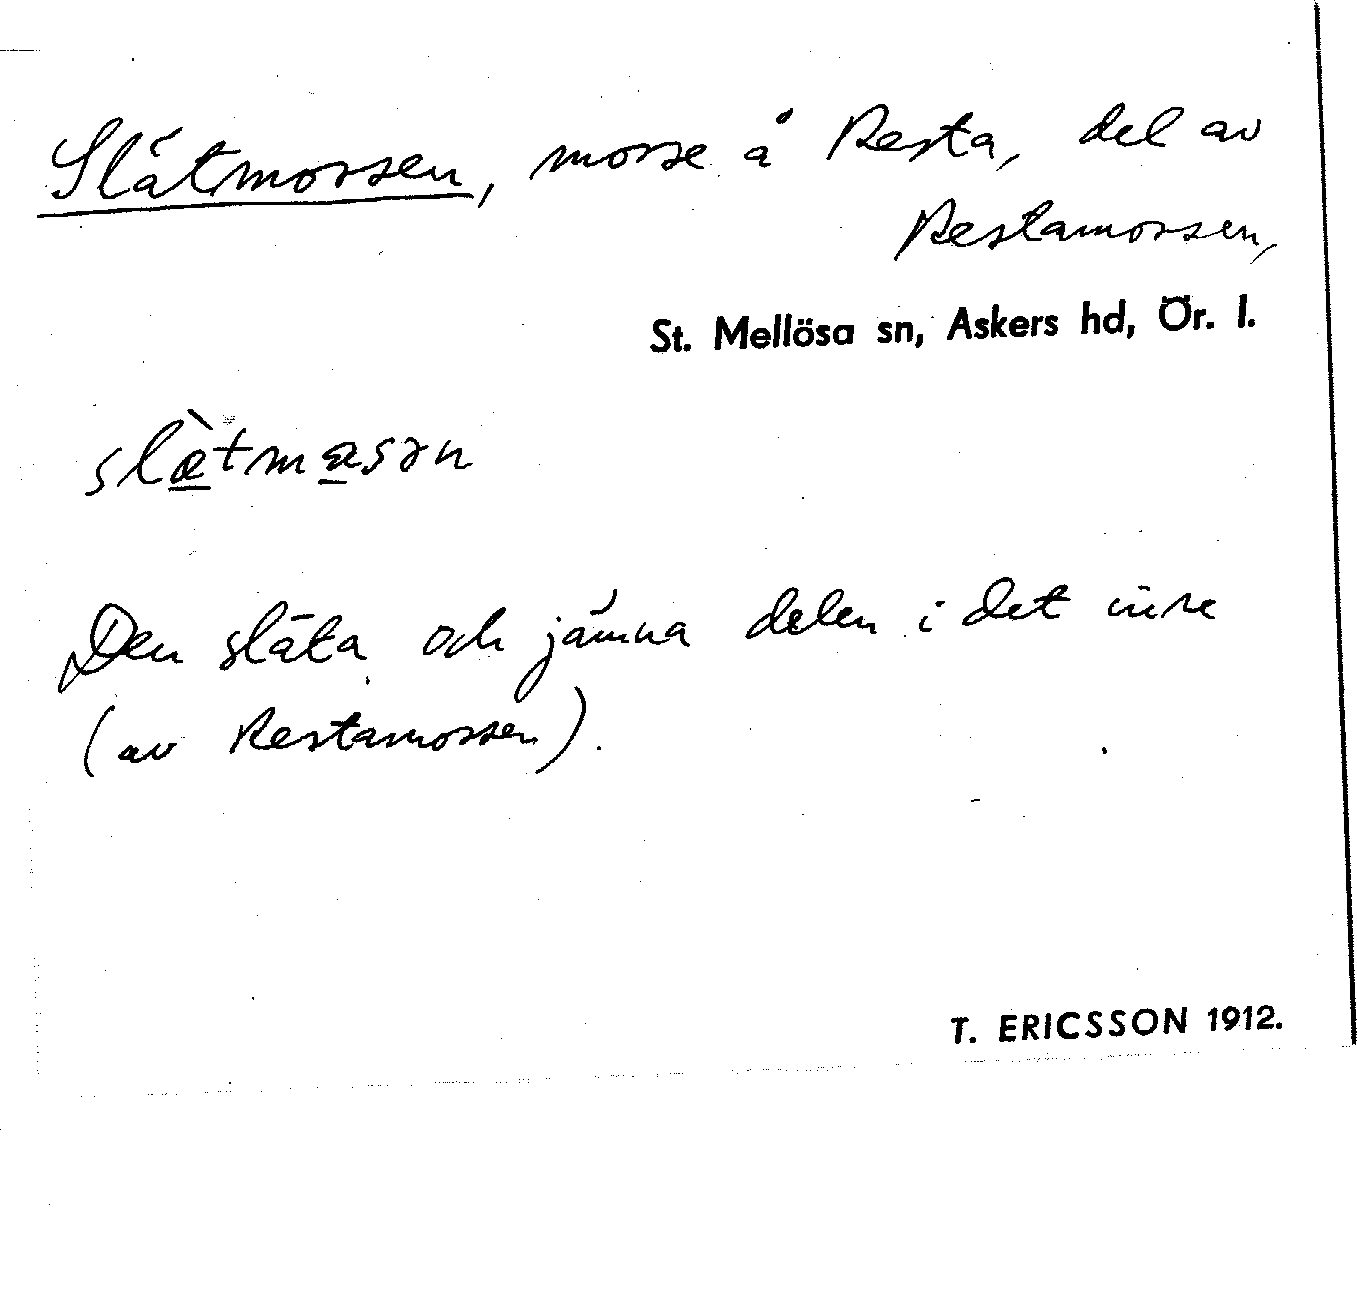 Slätmossen, mosse å Resta, del av
Restamossen,
St. Mellösa sn, Askers hd, Ör. l.
Den släta och jämna delen i det inre
(av Restamossen).
T. ERICSSON 1912.